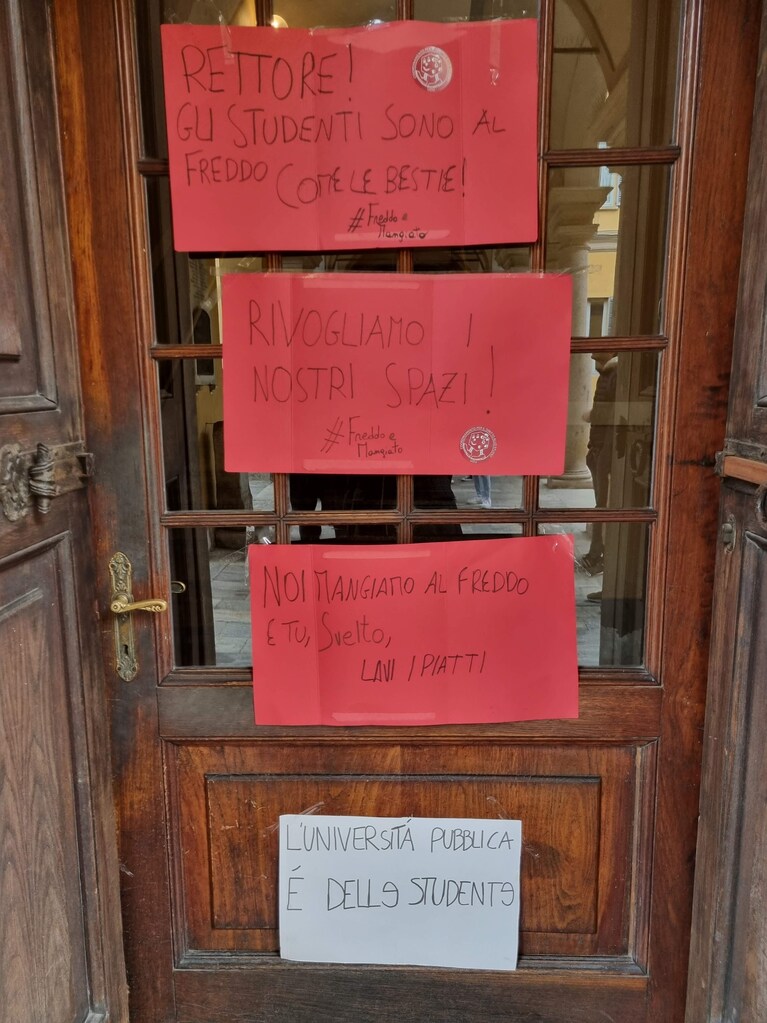 RETTORE!
GLI STUDENTI SONO AL
FREDDO COME LE BESTIE!
#Freddo e
Mangiato
RIVOGLIAMO I
NOSTRI SPAZI!
#Freddo e
Mangiato
NOI MANGIAMO AL FREDDO
E TU, Svelto,
LAVI I PIATTI
L'UNIVERSITÁ PUBBLICA
É DELLƏ STUDENTƏ